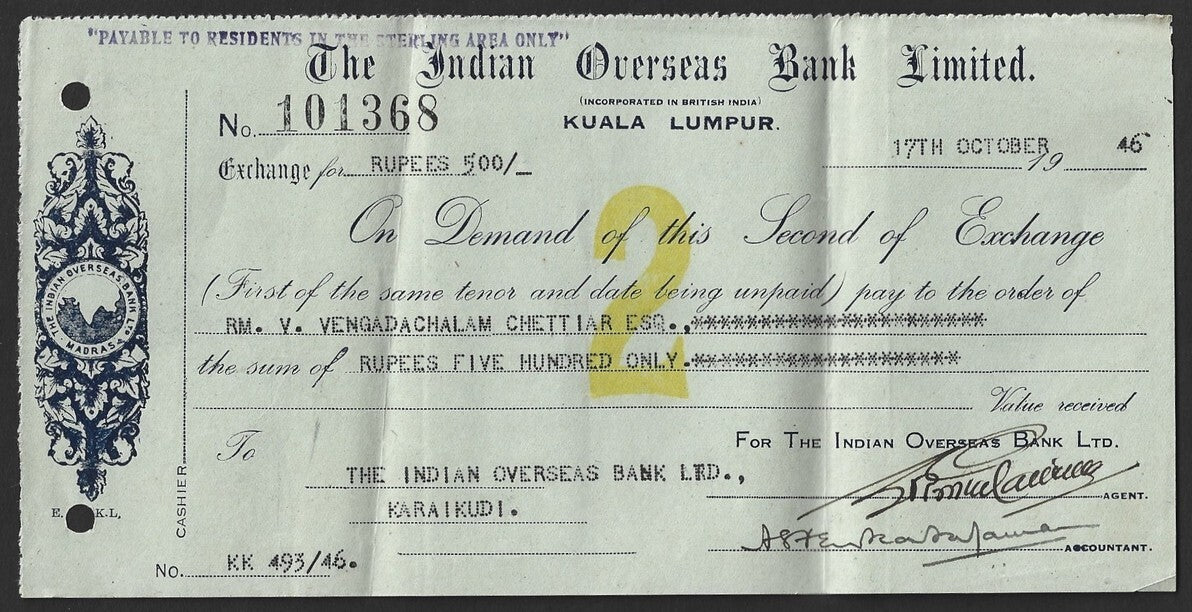 "PAYABLE TO RESIDENTS IN THE STERLING AREA ONLY"
The Indian Overseas Bank Limited.
(INCORPORATED IN BRITISH INDIA)
KUALA LUMPUR.
No. 101368
17TH OCTOBER 19 46
Exchange for RUPEES 500/_
2
On Demand of this Second of Exchange
(First of the same tenor and date being unpaid) pay to the order of
RM. V. VENGADACHALAM CHETTIAR ESQ.,*********************
the sum of RUPEES FIVE HUNDRED ONLY.*******************
Value received
THE INDIAN OVERSEAS BANK LTD
MADRAS
For The Indian Overseas Bank Ltd.
To
THE INDIAN OVERSEAS BANK LTD.,
KARAIKUDI.
AGENT.
ACCOUNTANT.
CASHIER
E. K.L.
No. KK 493/46.